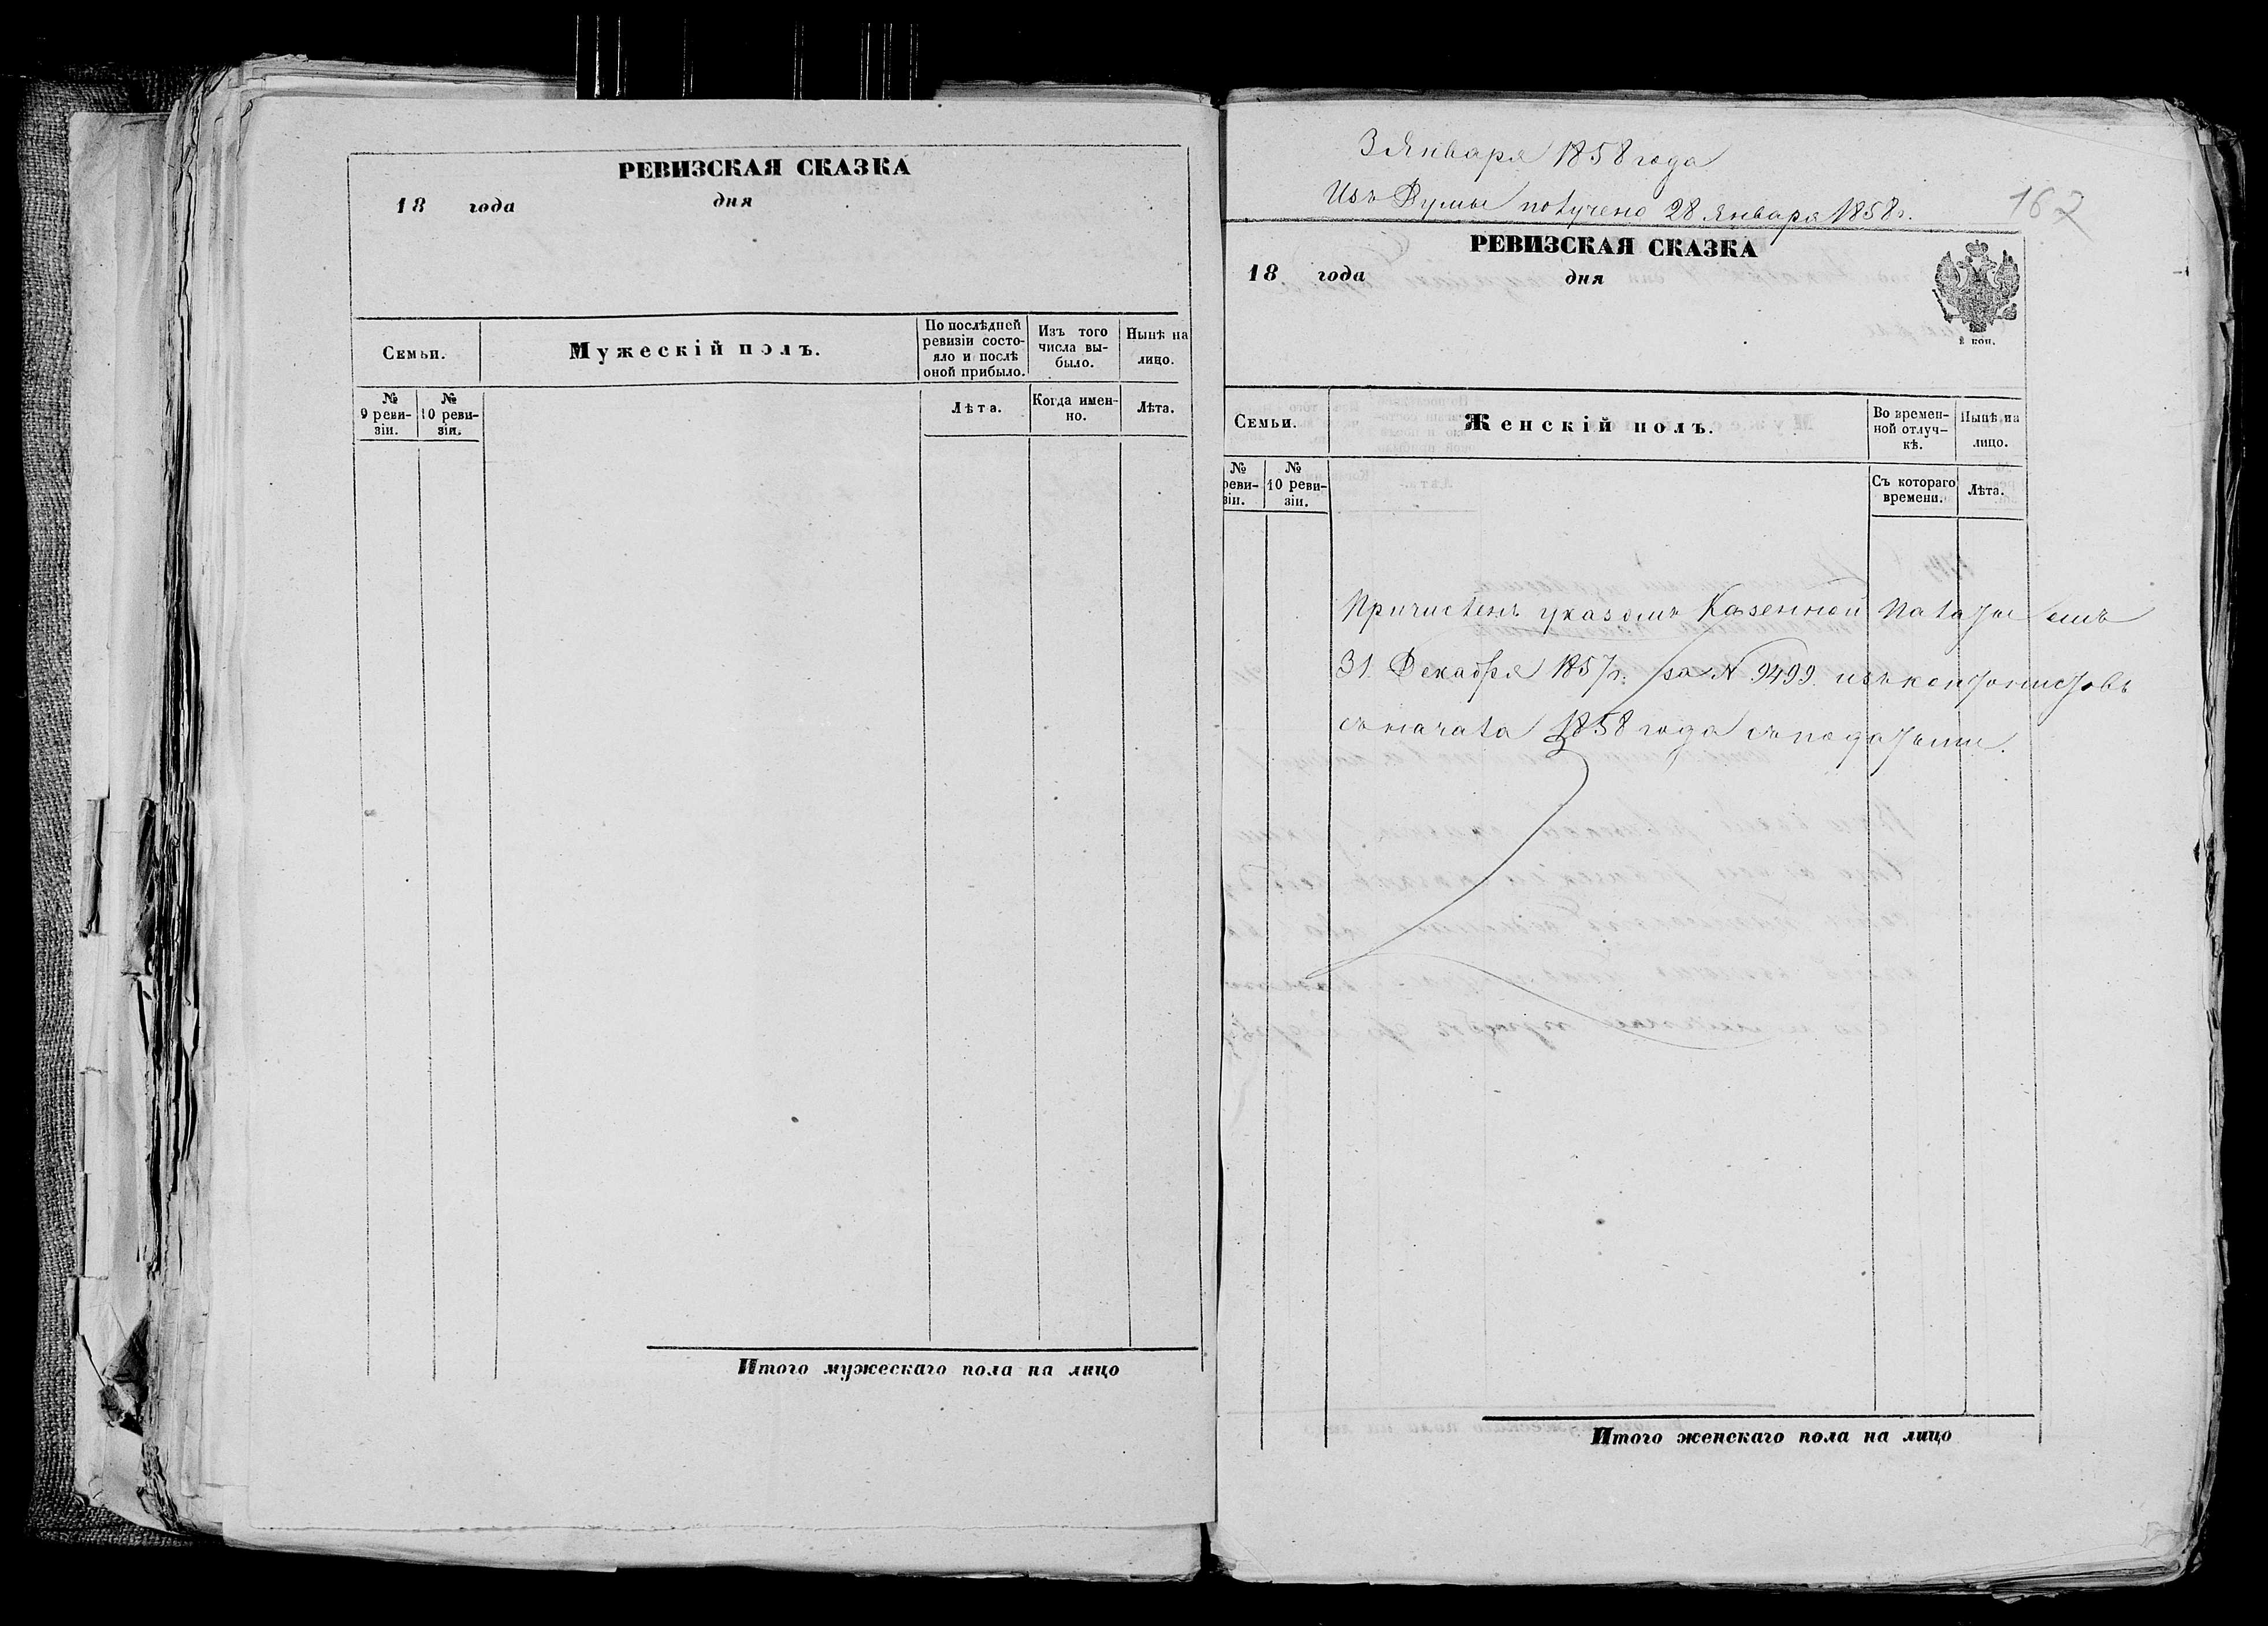 РЕВИЗСКАЯ СКАЗКА
18 года дня
Семьи.
Мужескій полъ.
По послѣдней ревизіи состояло и послѣ оной прибыло.
Изъ того числа выбыло.
Нынѣ на лицо.
№ 9 ревизіи.
№ 10 ревизіи.
Лѣта.
Когда именно.
Лѣта.
Итого мужескаго пола на лицо
3 Января 1858 года
Изъ Думы получено 28 Января 1858 г.
162
РЕВИЗСКАЯ СКАЗКА
18 года дня
2 коп.
Семьи.
Женскій полъ.
Во временной отлучкѣ.
Нынѣ на лицо.
№ ревизіи.
№ 10 ревизіи.
Съ котораго времени.
Лѣта.
Причисленъ указомъ Казенной Палаты отъ
31. Декабря 1857 г. за № 9499. изъ кантонистовъ
съ начала 1858 года съ податьми.
Итого женскаго пола на лицо